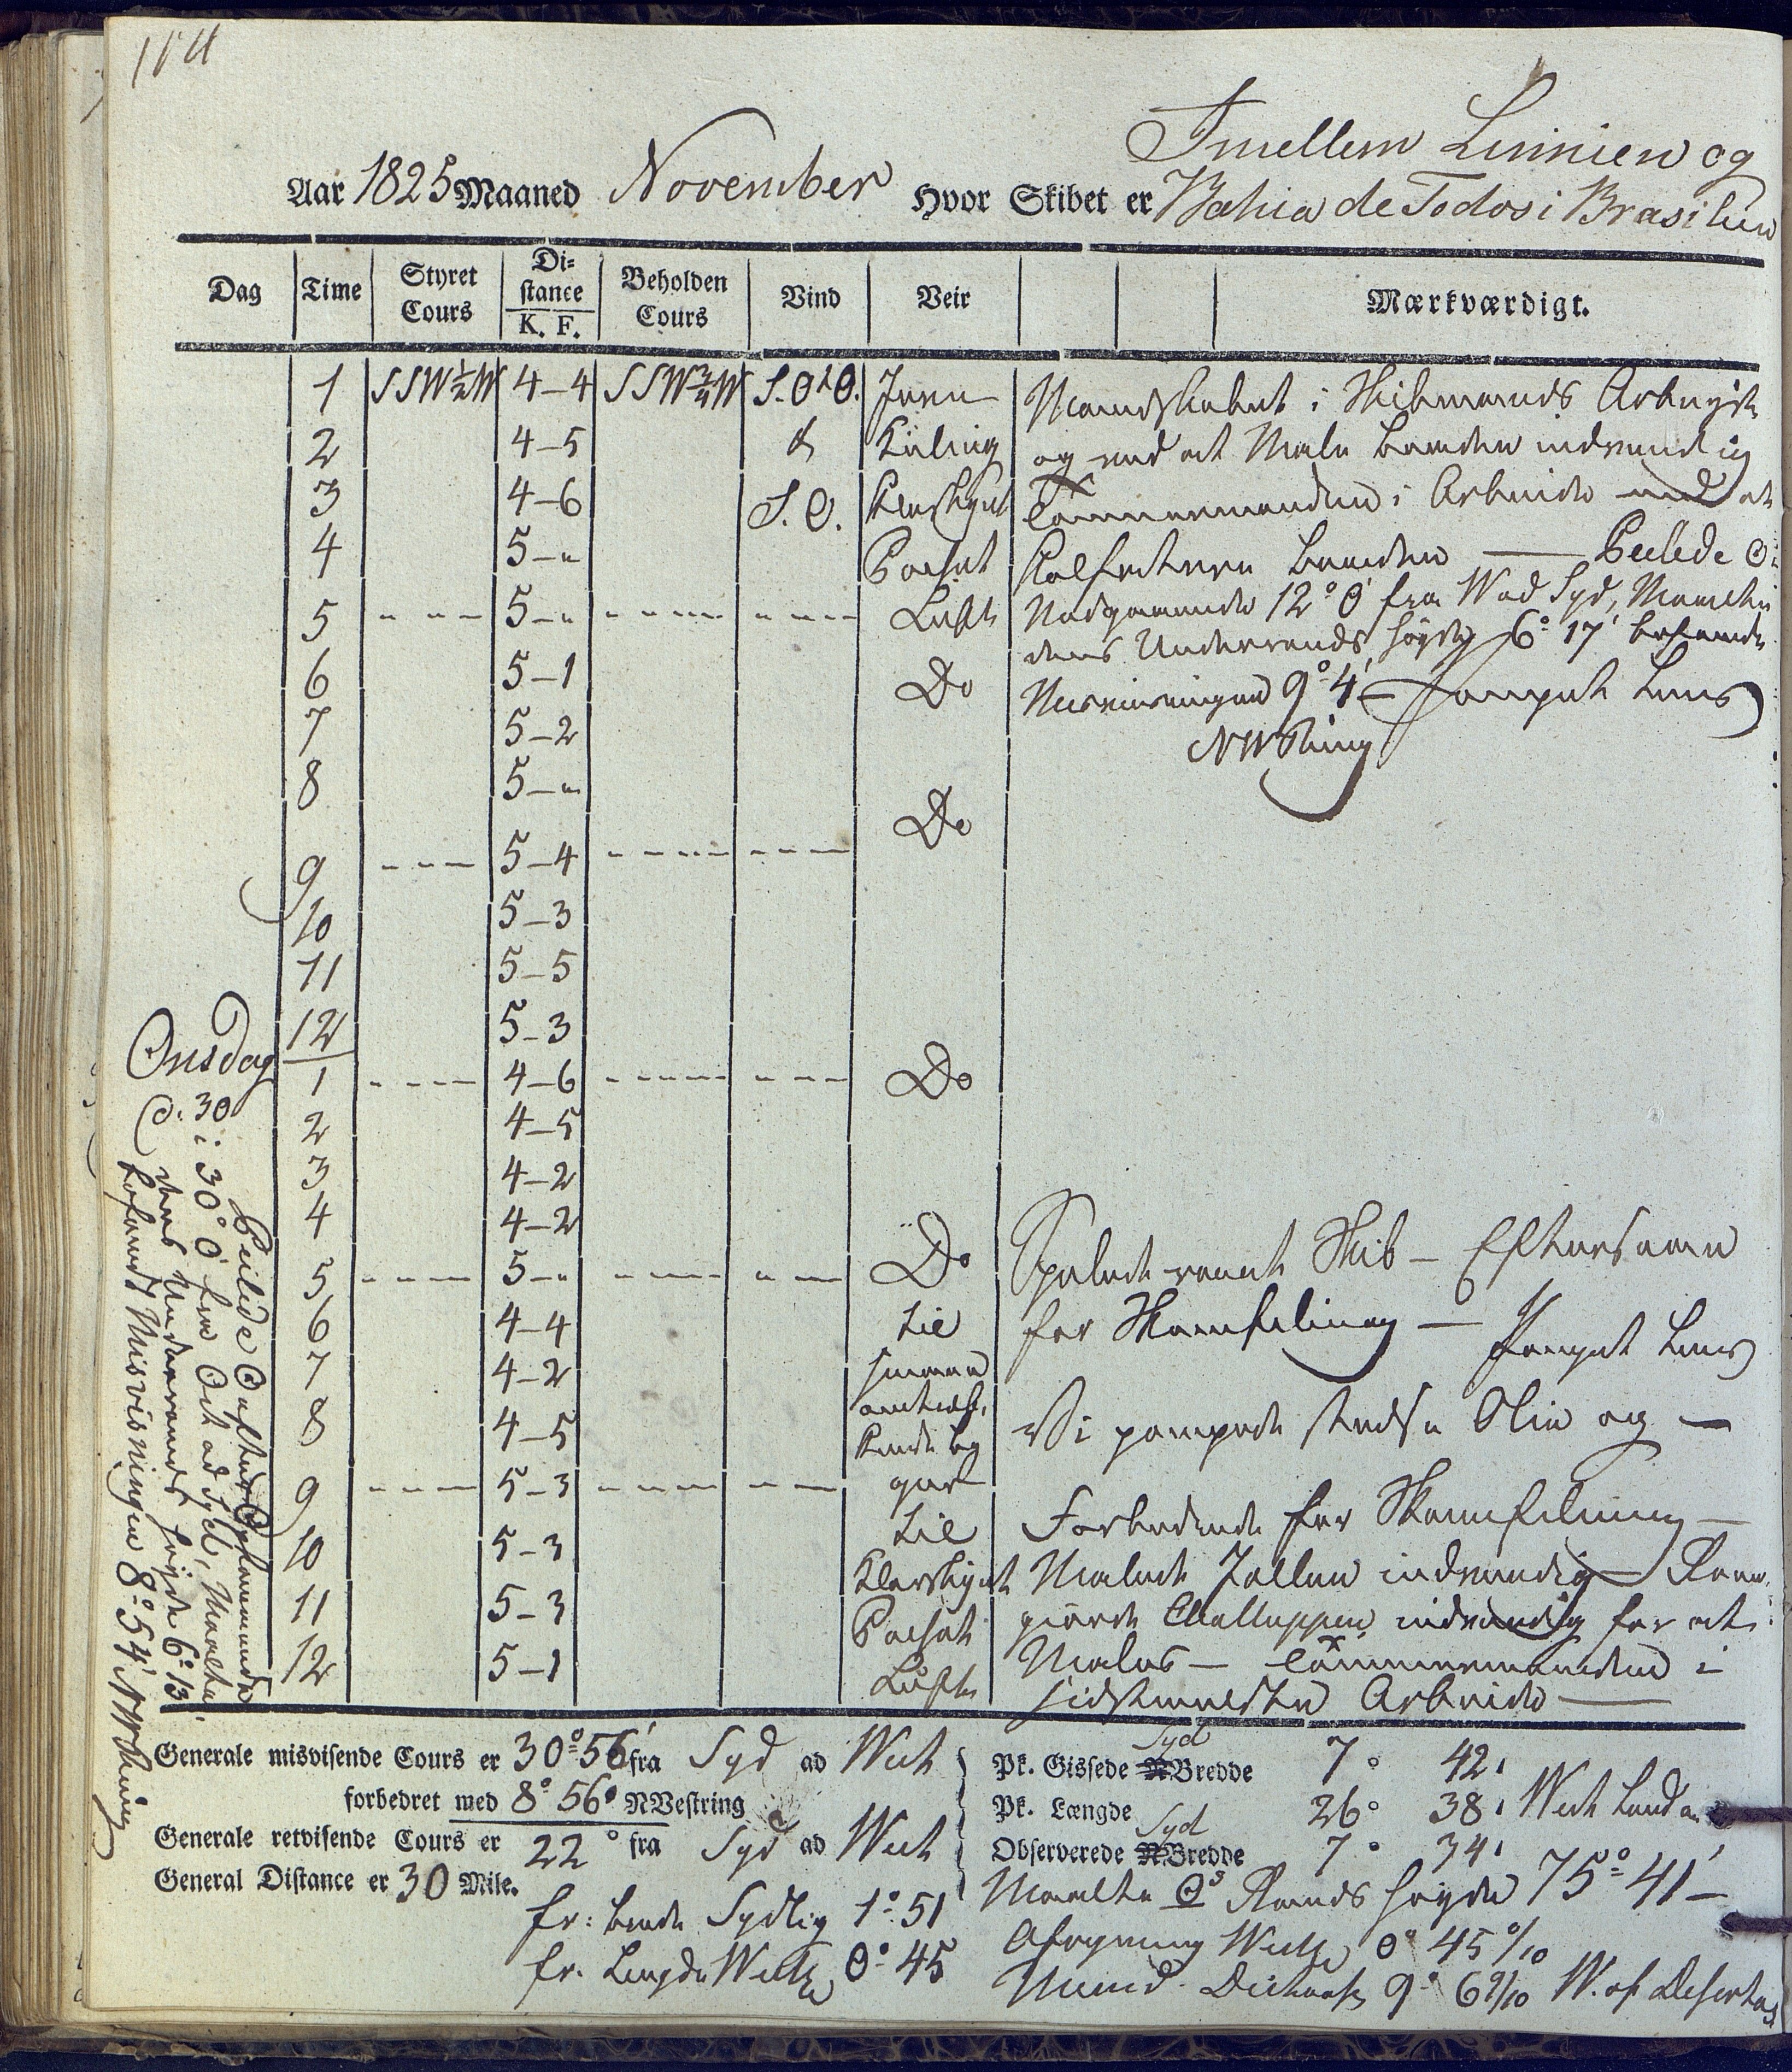 Imellem Linnien og
Aar 1825 Maaned November Hvor Skibet er Bahia de Todos i Brasilien
Dag Time Styret Cours Distance K. F. Beholden Cours Vind Veir Mærkværdigt.
1 SSW½W 4-4 SSW¾W S.OtO. Jevn Mandskabet i Skibmands Arbeyde
2 4-5 & Kuling og ved at Male Baaden indvendig
3 4-6 S.O. Klarhiget Tømmermanden i Arbeide med at
4 5-" Passat Kalfattere Baaden — Peilede ☉
5 --- 5-" ---- ---- Luft Nedgaaende 12° 0' fra W ad Syd, Maalte
dens Underrands høyde 6° 17' befandt
6 5-1 Do Misvisningen 9° 4' — Pompet Lens
7 5-2 NWstring
8 5-"
Do
9 --- 5-4 ---- ----
10 5-3
11 5-5
12 5-3
Onsdag 1 --- 4-6 ---- --- Do
d. 30 2 4-5
3 4-2
4 4-2
5 --- 5-" ---- --- Do Spulede rendt Skib — Eftersaae
6 4-4 Lie for Skamfiling —
7 4-2 Pompet Lens
8 4-5 Vi pompede stedse Olie og —
9 --- 5-3 ---- ---
Lie Forbedrede for Skamfiling —
10 5-3 Klarhiget Malede Jollen indvendig — Reen
11 5-3 Passat giorde Challuppen indvendig for at
12 5-1 Luft Males — Tømmermanden i
sidstmeldte Arbeide —
Peilede ☉ efter Opkommende
i 30° 0' fra Ost ad Syd, Maalte
dens Underrands høyde 6° 13'
befandt Misvisningen 8° 54' NWstring
Generale misvisende Cours er 30° 56' fra Syd ad West
forbedret med 8° 56' NVestring
Generale retvisende Cours er 22° fra Syd ad West
General Distance er 30 Mile.
fr: brede Sydlig 1° 51'
fr. Lengde Westl 0° 45
Pk. Gissede Syd Bredde 7° 42'
Pk. Længde 26° 38' West Lond
Observerede Syd Bredde 7° 34'
Maalte ☉s Rands høyde 75° 41' —
Afvigning Westl 0° 45
W. af Desertas